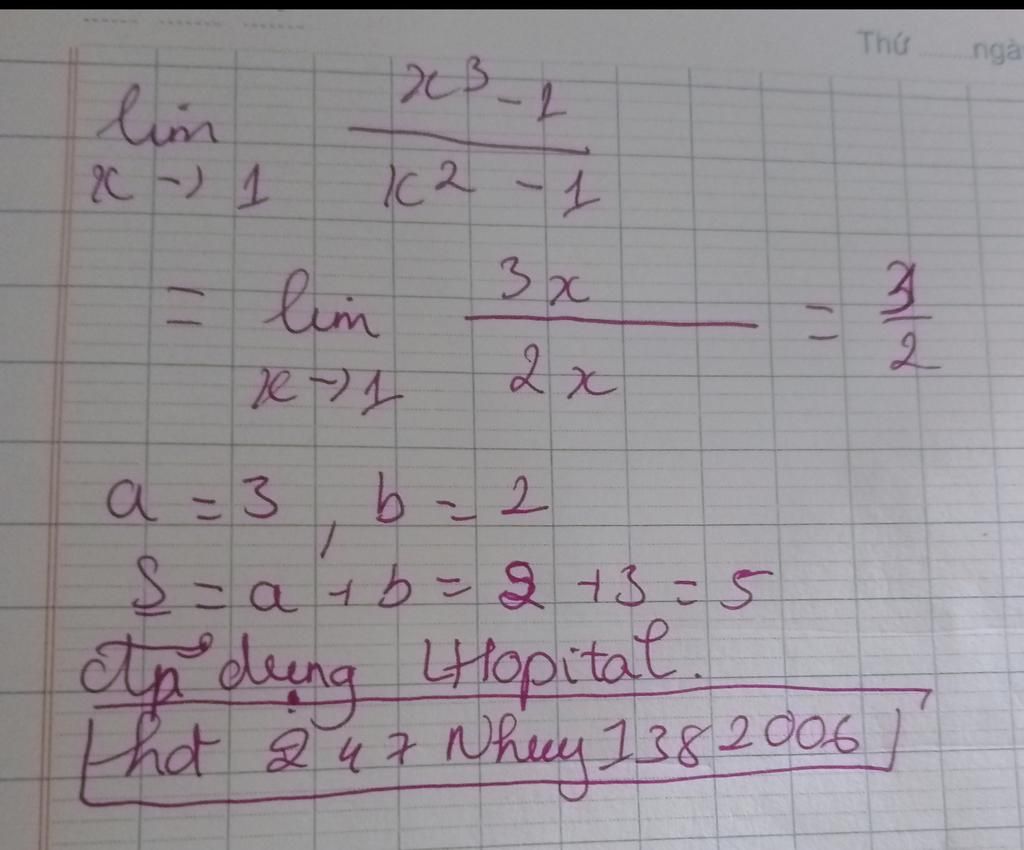 Thứ ...... ngà
lim x³ - 1
x → 1 x² - 1
= lim 3x = 3
x → 1 2x 2
a = 3, b = 2
S = a + b = 2 + 3 = 5
Áp dụng LHopital.
hdt 247 Nhuy1382006